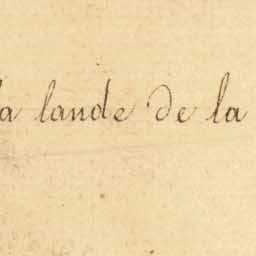 la lande de la